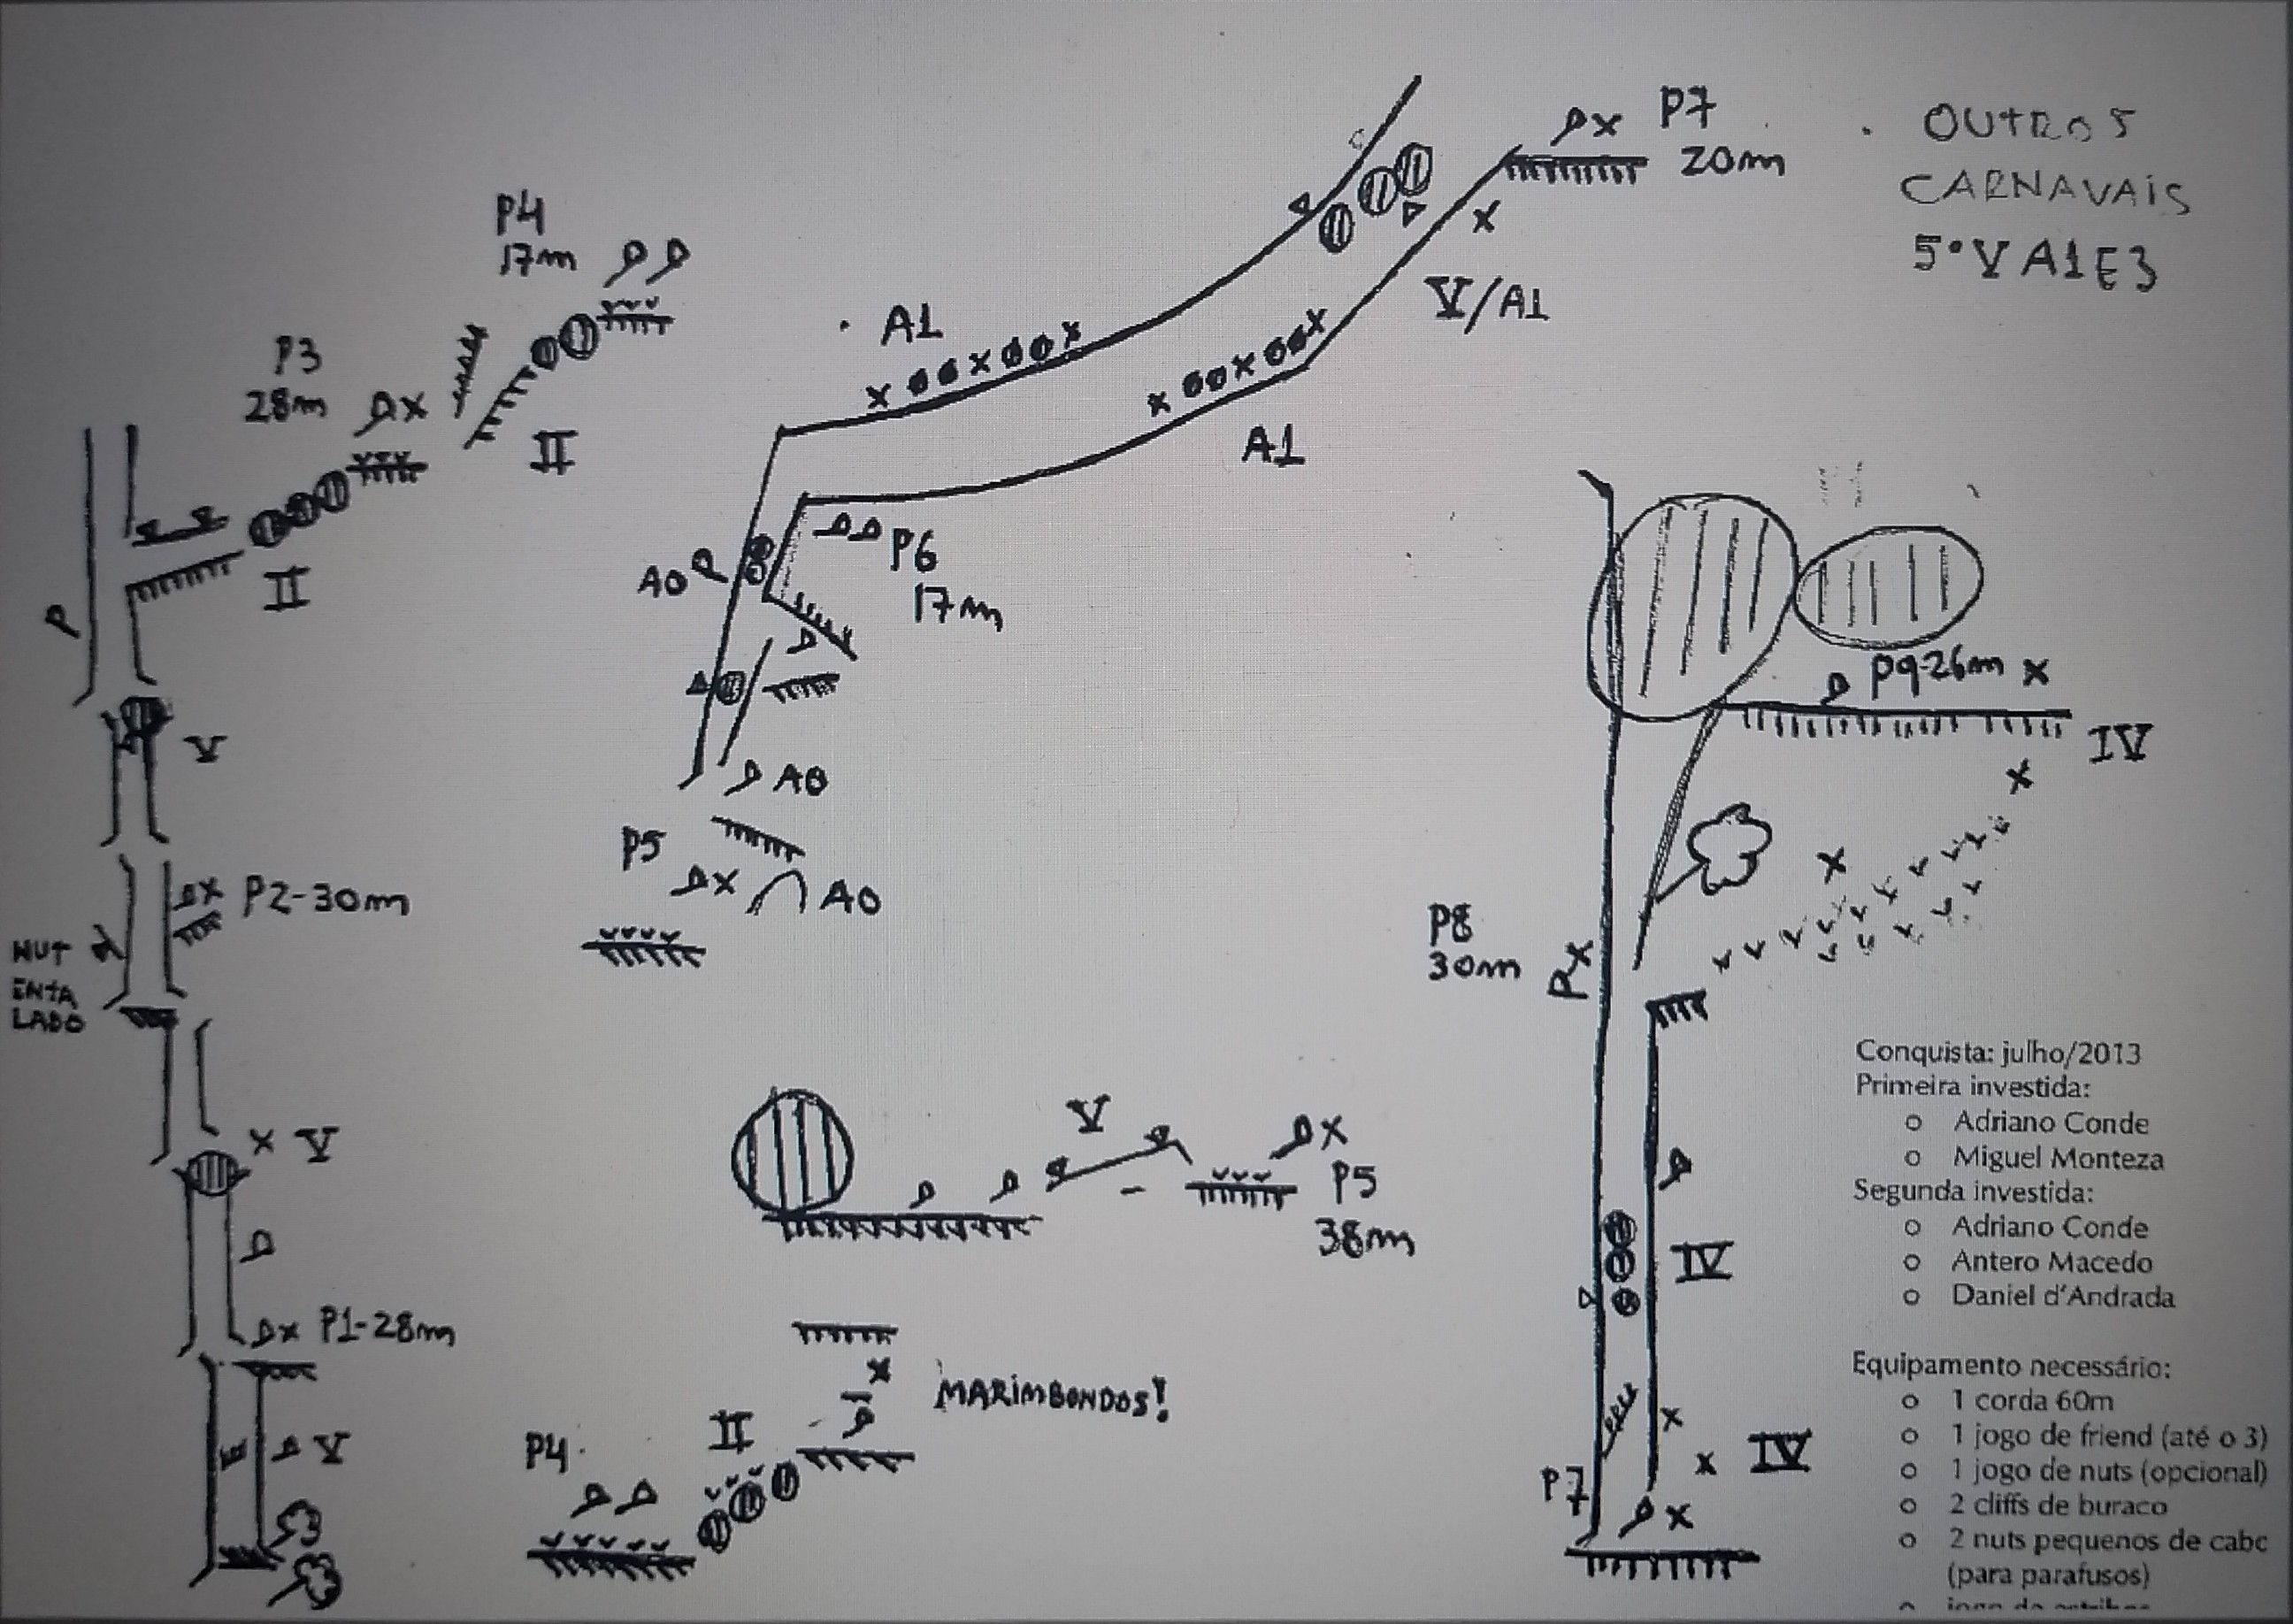 OUTROS
CARNAVAIS
5° V A1 E3
P7
20m
P4
17m
P3
28m
II
II
A1
V/A1
A1
A0
P6
17m
A0
P5
A0
V
P2-30m
NUT
ENTA
LADO
V
P1-28m
V
P9-26m
IV
P8
30m
IV
IV
P7
V
P5
38m
MARIMBONDOS!
II
P4
Conquista: julho/2013
Primeira investida:
Adriano Conde
Miguel Monteza
Segunda investida:
Adriano Conde
Antero Macedo
Daniel d'Andrada
Equipamento necessário:
1 corda 60m
1 jogo de friend (até o 3)
1 jogo de nuts (opcional)
2 cliffs de buraco
2 nuts pequenos de cabc
(para parafusos)